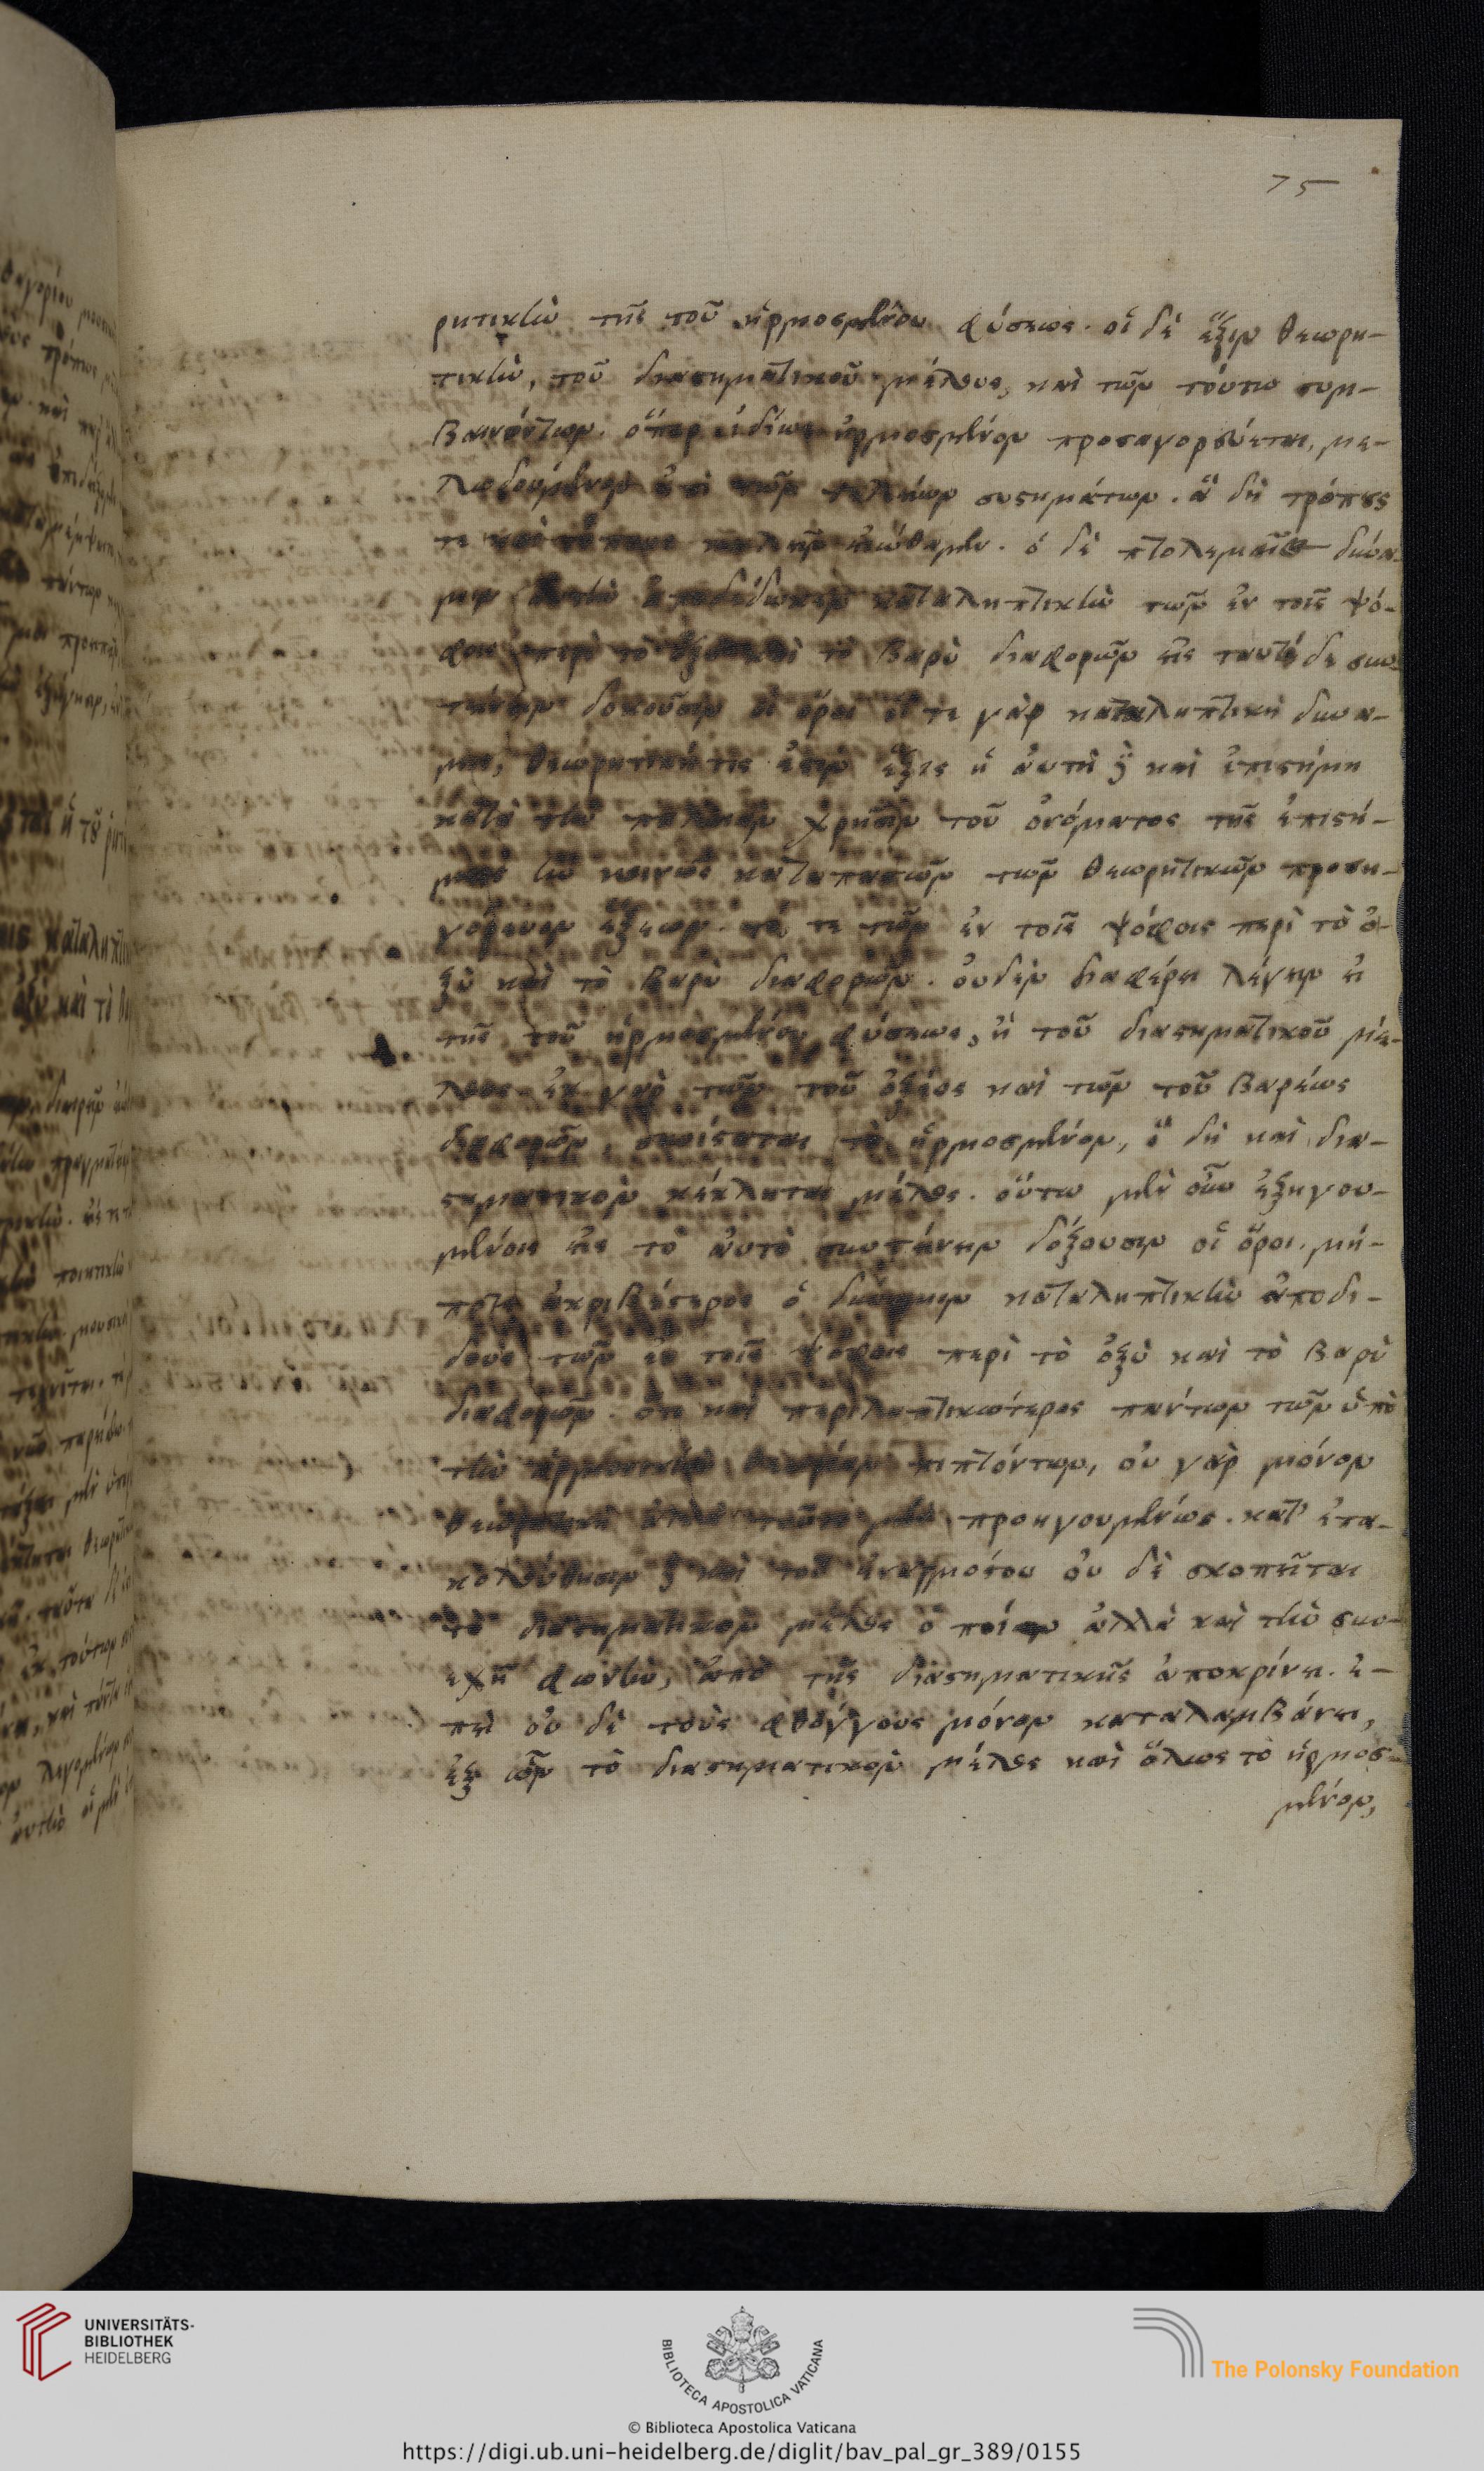 75
ρητικὴν τῆς τοῦ ἡρμοσμένου φύσεως. οἱ δὲ ἕξιν θεωρη-
τικὴν, τοῦ διαστηματικοῦ μέλους, καὶ τῶν τούτω συμ-
βαινόντων. ὅπερ ἰδίως ἡρμοσμένον προσαγορεύεται, με-
λωδούμενον ἐπὶ τῶν τελείων συστημάτων. ἃ δὴ τρόπους
τε καὶ τόνους καλεῖν εἰώθαμεν. ὁ δὲ πτολεμαῖος δύνα-
μιν αὐτὴν ἀποδέδωκεν καταληπτικὴν τῶν ἐν τοῖς ψό-
φοις περὶ τὸ ὀξὺ καὶ τὸ βαρὺ διαφορῶν εἰς ταυτὸ δὲ συν-
τείνειν δοκοῦσιν οἱ ὅροι ἥ τε γὰρ καταληπτικὴ δύνα-
μις, θεωρητική τις ἐστὶν ἕξις ἡ αὐτὴ δὲ καὶ ἐπιστήμη
κατὰ τὴν παλαιὰν χρῆσιν τοῦ ὀνόματος τῆς ἐπιστή-
μης ἣν κοινῶς καταπασῶν τῶν θεωρητικῶν προση-
γόρευον ἕξεων. τό τε τῶν ἐν τοῖς ψόφοις περὶ τὸ ὀ-
ξὺ καὶ τὸ βαρὺ διαφορῶν. οὐδὲν διαφέρει λέγειν εἰ
τῆς τοῦ ἡρμοσμένου φύσεως, ἢ τοῦ διαστηματικοῦ μέ-
λους. ἐκ γὰρ τῶν τοῦ ὀξέος καὶ τῶν τοῦ βαρέως
διαφορῶν, συνίσταται τὸ ἡρμοσμένον, ὃ δὴ καὶ δια-
στηματικὸν κέκληται μέλος. οὕτω μὲν οὖν ἐξηγου-
μένοις εἰς τὸ αὐτὸ συντείνειν δόξουσιν οἱ ὅροι. μή-
ποτε ἀκριβέστερος ὁ δύναμιν καταληπτικὴν ἀποδι-
δοὺς τῶν ἐν τοῖς ψόφοις περὶ τὸ ὀξὺ καὶ τὸ βαρὺ
διαφορῶν. ὅτι καὶ περιληπτικώτερος πάντων τῶν ὑπὸ
τὴν ἁρμονικὴν θεωρίαν πιπτόντων, οὐ γὰρ μόνον
προηγουμένως. κατ' ἐπα-
κολούθησιν δὲ καὶ τοῦ ἀναρμόστου οὐ δὲ σκοπεῖται
τὸ διαστηματικὸν μέλος ὁποῖον ἀλλὰ καὶ τὴν συν-
εχῆ φωνὴν, ἀπὸ τῆς διαστηματικῆς ἀποκρίνει. ἐ-
πεὶ οὐ δὲ τοὺς φθόγγους μόνον καταλαμβάνει,
ἐξ ὧν τὸ διαστηματικὸν μέλος καὶ ὅλως τὸ ἡρμοσ-
μένον,
UNIVERSITÄTS-
BIBLIOTHEK
HEIDELBERG
BIBLIOTECA APOSTOLICA VATICANA
The Polonsky Foundation
© Biblioteca Apostolica Vaticana
https://digi.ub.uni-heidelberg.de/diglit/bav_pal_gr_389/0155